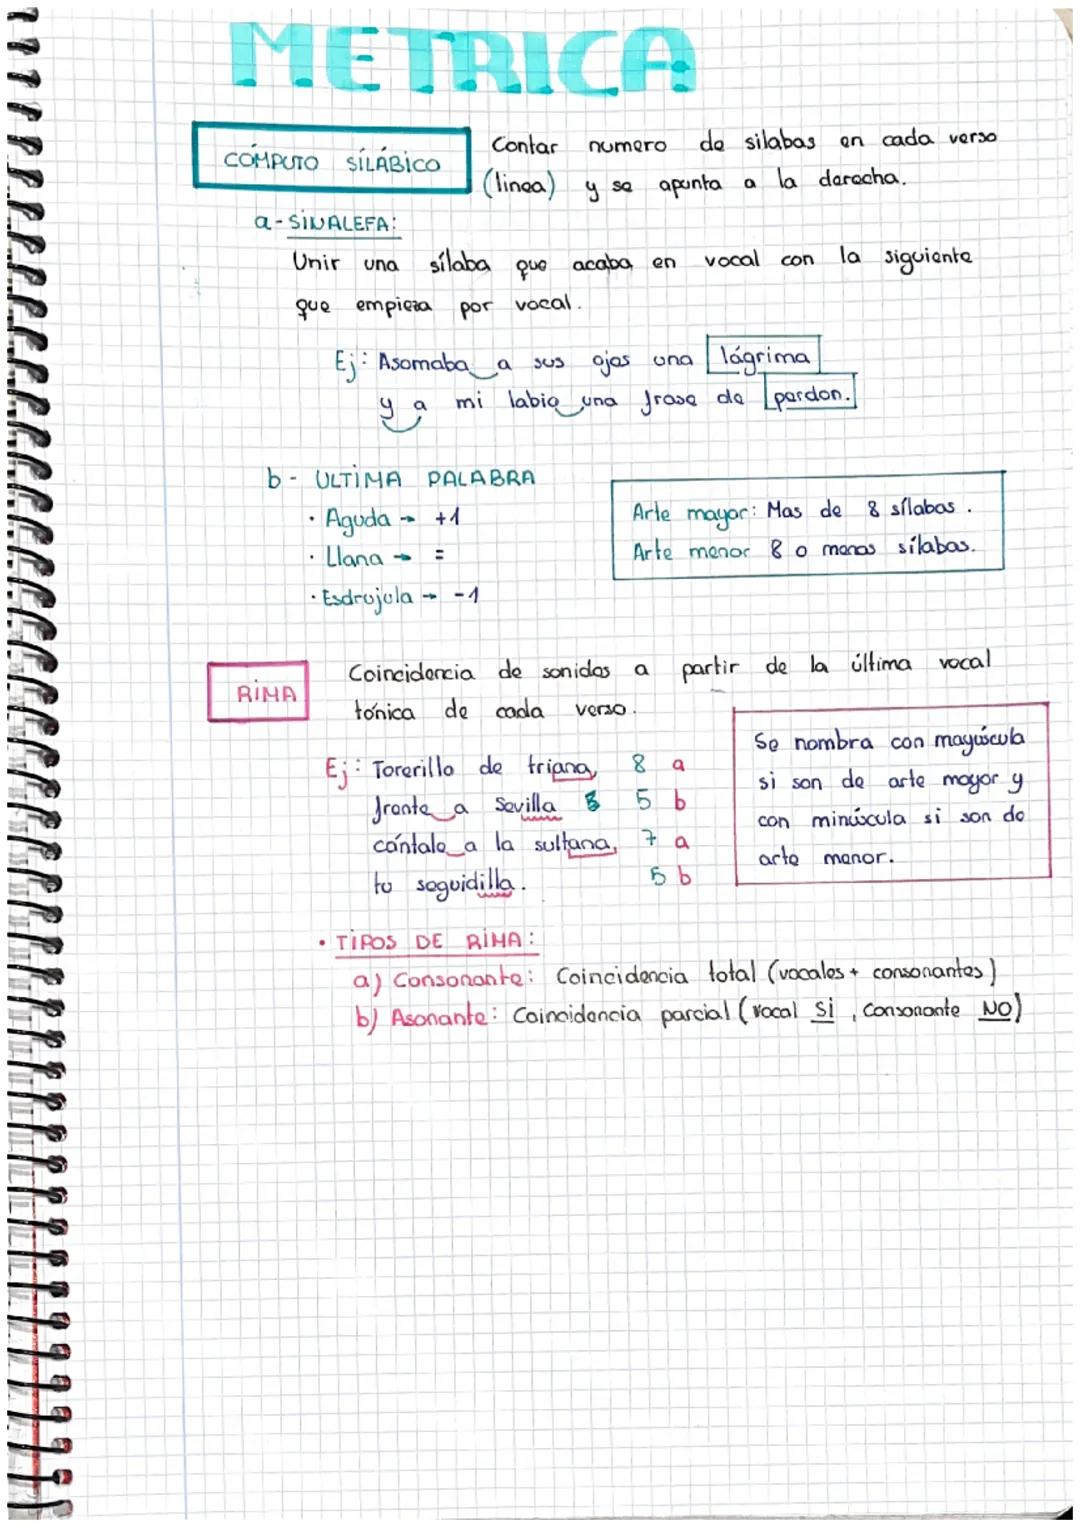 METRICA
CÓMPUTO SÍLÁBICO
Contar numero de silabas en cada verso
(linea) y se apunta a la derecha.
a- SINALEFA:
Unir una sílaba que acaba en vocal con la siguiente
que empieza por vocal.
Ej: Asomaba a sus ojos una lágrima
y a mi labio una frase de perdon.
b- ULTIMA PALABRA
· Aguda → +1
· Llana → =
· Esdrujula → -1
Arte mayor: Mas de 8 sílabas.
Arte menor 8 o menos sílabas.
RIMA
Coincidencia de sonidos a partir de la última vocal
tónica de cada verso.
Ej: Torerillo de triana, 8 a
frente a Sevilla 5 b
cántale a la sultana, 7 a
tu seguidilla. 5 b
Se nombra con mayúscula
si son de arte mayor y
con minúscula si son de
arte menor.
• TIPOS DE RIMA:
a) Consonante: Coincidencia total (vocales + consonantes)
b) Asonante: Coincidencia parcial (vocal SI, consonante NO)